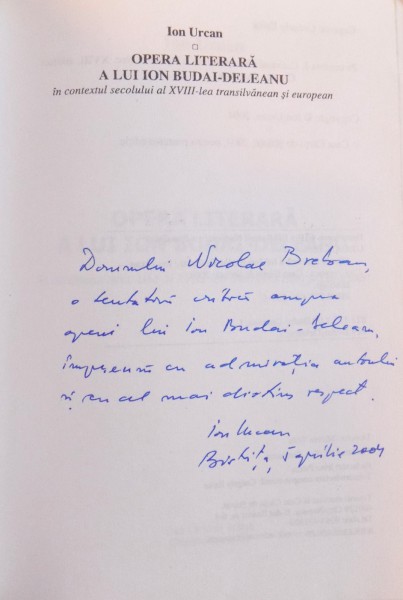 Ion Urcan
OPERA LITERARĂ
A LUI ION BUDAI-DELEANU
în contextul secolului al XVIII-lea transilvănean și european
Domnului Nicolae Breban,
o tentativă critică asupra
operei lui Ion Budai-Deleanu,
împreună cu admirația autorului
și cu cel mai distins respect.
Ion Urcan
Bistrița, aprilie 2004